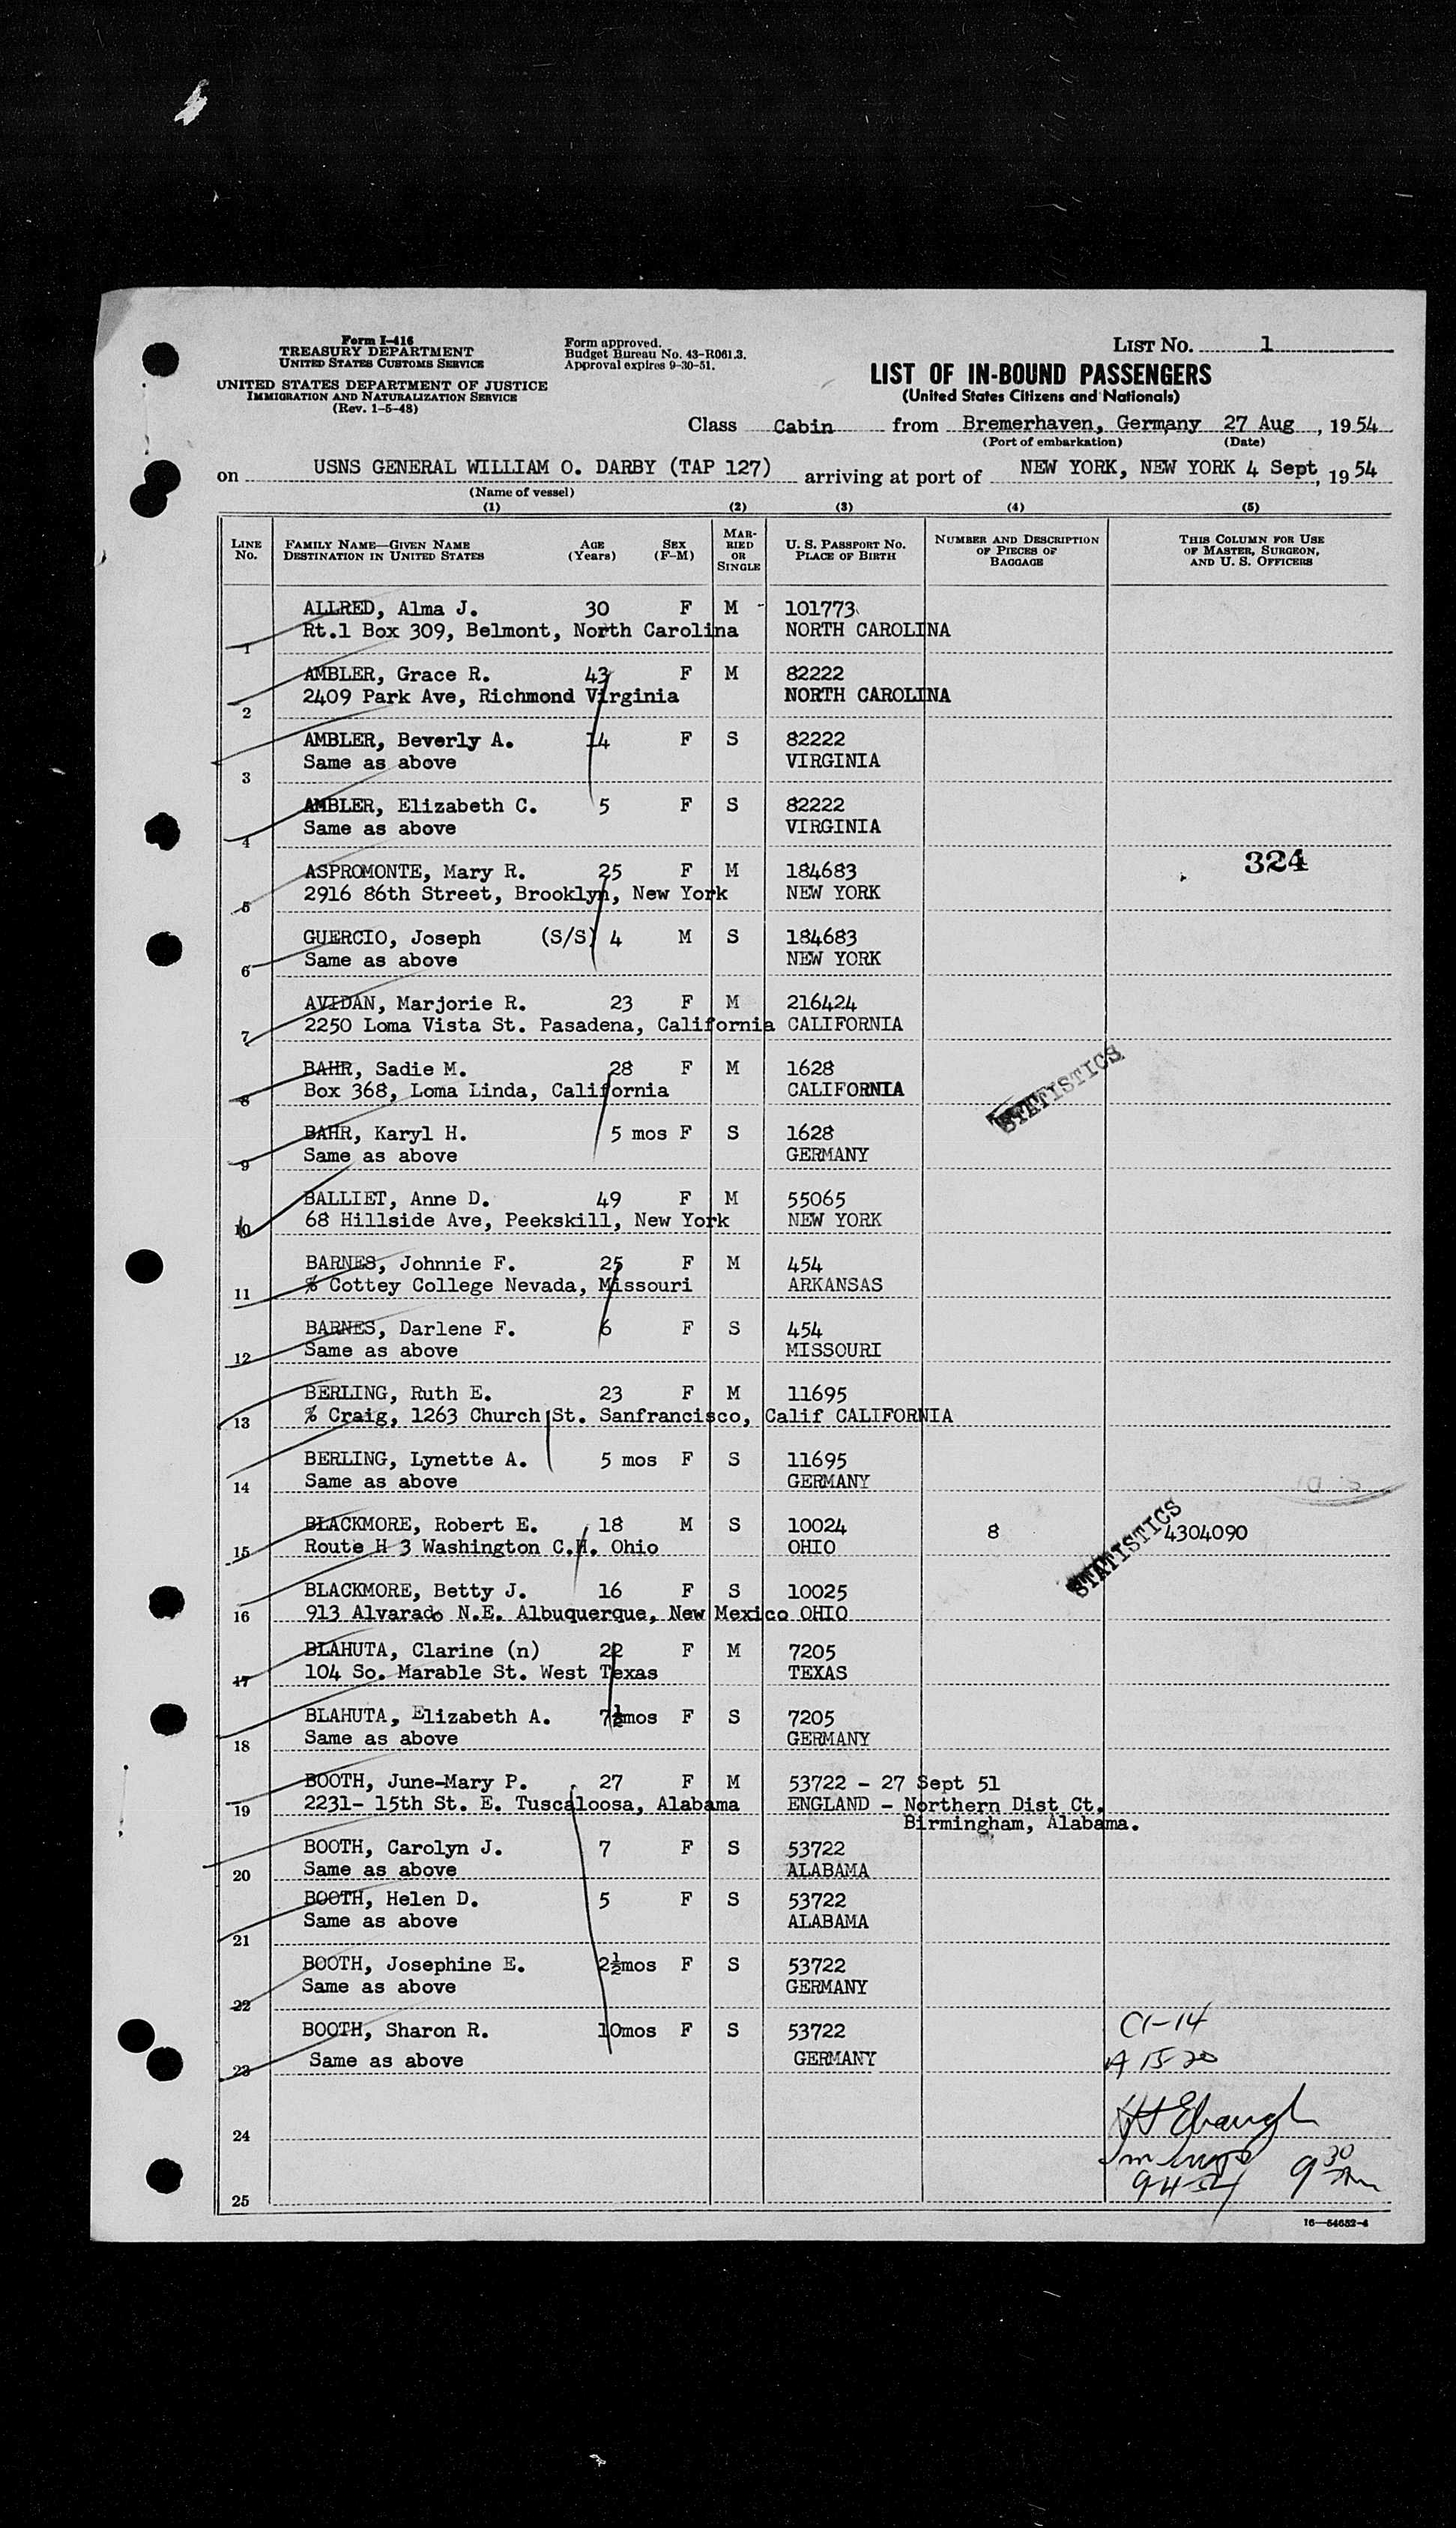 Form I-416
TREASURY DEPARTMENT
UNITED STATES CUSTOMS SERVICE
UNITED STATES DEPARTMENT OF JUSTICE
IMMIGRATION AND NATURALIZATION SERVICE
(Rev. 1-5-48)
Form approved.
Budget Bureau No. 43-R061.3.
Approval expires 9-30-51.
LIST NO. 1
LIST OF IN-BOUND PASSENGERS
(United States Citizens and Nationals)
Class Cabin from Bremerhaven, Germany 27 Aug, 1954
(Port of embarkation) (Date)
on USNS GENERAL WILLIAM O. DARBY (TAP 127) arriving at port of NEW YORK, NEW YORK 4 Sept, 1954
(Name of vessel)
(1) (2) (3) (4) (5)
LINE No. FAMILY NAME—GIVEN NAME DESTINATION IN UNITED STATES AGE (Years) SEX (F-M) MARRIED OR SINGLE U. S. PASSPORT NO. PLACE OF BIRTH NUMBER AND DESCRIPTION OF PIECES OF BAGGAGE THIS COLUMN FOR USE OF MASTER, SURGEON, AND U. S. OFFICERS
ALLRED, Alma J. 30 F M - 101773
1 Rt.1 Box 309, Belmont, North Carolina NORTH CAROLINA
AMBLER, Grace R. 43 F M 82222
2 2409 Park Ave, Richmond Virginia NORTH CAROLINA
AMBLER, Beverly A. 14 F S 82222
3 Same as above VIRGINIA
AMBLER, Elizabeth C. 5 F S 82222
4 Same as above VIRGINIA
324
ASPROMONTE, Mary R. 25 F M 184683
5 2916 86th Street, Brooklyn, New York NEW YORK
GUERCIO, Joseph (S/S) 4 M S 184683
6 Same as above NEW YORK
AVIDAN, Marjorie R. 23 F M 216424
7 2250 Loma Vista St. Pasadena, California CALIFORNIA
BAHR, Sadie M. 28 F M 1628
8 Box 368, Loma Linda, California CALIFORNIA
STATISTICS
BAHR, Karyl H. 5 mos F S 1628
9 Same as above GERMANY
BALLIET, Anne D. 49 F M 55065
10 68 Hillside Ave, Peekskill, New York NEW YORK
BARNES, Johnnie F. 25 F M 454
11 % Cottey College Nevada, Missouri ARKANSAS
BARNES, Darlene F. 6 F S 454
12 Same as above MISSOURI
BERLING, Ruth E. 23 F M 11695
13 % Craig, 1263 Church St. Sanfrancisco, Calif CALIFORNIA
BERLING, Lynette A. 5 mos F S 11695
14 Same as above GERMANY
BLACKMORE, Robert E. 18 M S 10024 8 4304090
15 Route H 3 Washington C.H. Ohio OHIO
STATISTICS
BLACKMORE, Betty J. 16 F S 10025
16 913 Alvarado N.E. Albuquerque, New Mexico OHIO
BLAHUTA, Clarine (n) 22 F M 7205
17 104 So. Marable St. West Texas TEXAS
BLAHUTA, Elizabeth A. 7½mos F S 7205
18 Same as above GERMANY
BOOTH, June-Mary P. 27 F M 53722 - 27 Sept 51
19 2231- 15th St. E. Tuscaloosa, Alabama ENGLAND - Northern Dist Ct.
Birmingham, Alabama.
BOOTH, Carolyn J. 7 F S 53722
20 Same as above ALABAMA
BOOTH, Helen D. 5 F S 53722
21 Same as above ALABAMA
BOOTH, Josephine E. 2½mos F S 53722
22 Same as above GERMANY
BOOTH, Sharon R. 10mos F S 53722
23 Same as above GERMANY
C1-14
A 15-20
24
H Ebaugh
9-4-54 9 30 AM
25
16—54652-4